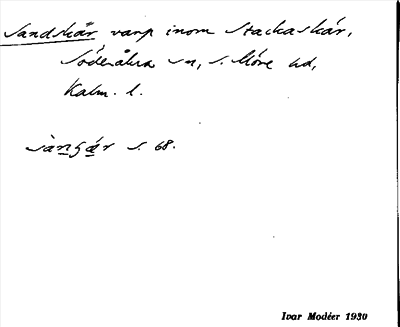 Sandskär varp inom Stackaskär,
Söderåkra sn, S. Möre hd,
Kalm. l.
sàngär s. 68.
Ivar Modéer 1930